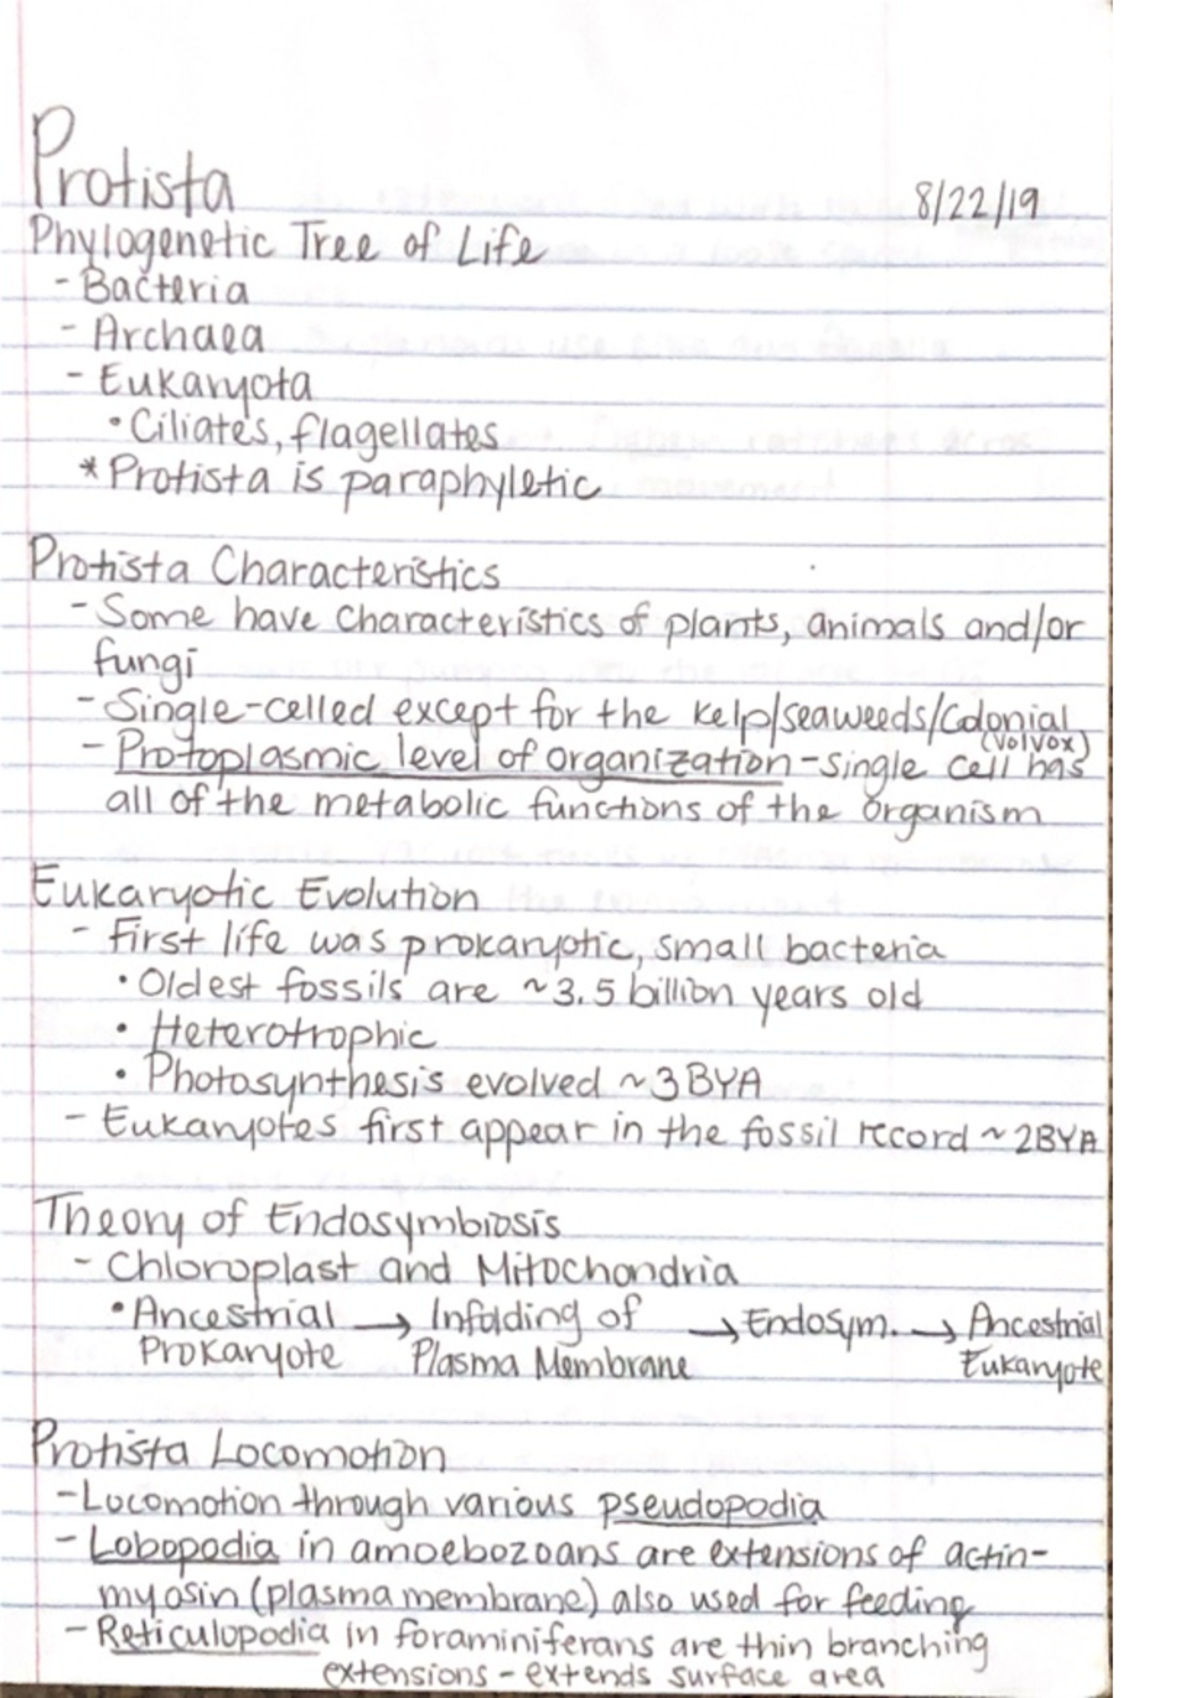 Protista
8/22/19
Phylogenetic Tree of Life
- Bacteria
- Archaea
- Eukaryota
• Ciliates, flagellates
* Protista is paraphyletic
Protista Characteristics
- Some have characteristics of plants, animals and/or
fungi
- Single-celled except for the kelp/seaweeds/Colonial
(volvox)
- Protoplasmic level of organization - single cell has
all of the metabolic functions of the organism
Eukaryotic Evolution
- First life was prokaryotic, small bacteria
• Oldest fossils are ~3.5 billion years old
• Heterotrophic
• Photosynthesis evolved ~3BYA
- Eukaryotes first appear in the fossil record ~2BYA
Theory of Endosymbiosis
- Chloroplast and Mitochondria
• Ancestrial → Infolding of → Endosym. → Ancestrial
Prokaryote Plasma Membrane Eukaryote
Protista Locomotion
- Locomotion through various pseudopodia
- Lobopodia in amoebozoans are extensions of actin-
myosin (plasma membrane) also used for feeding
- Reticulopodia in foraminiferans are thin branching
extensions - extends surface area